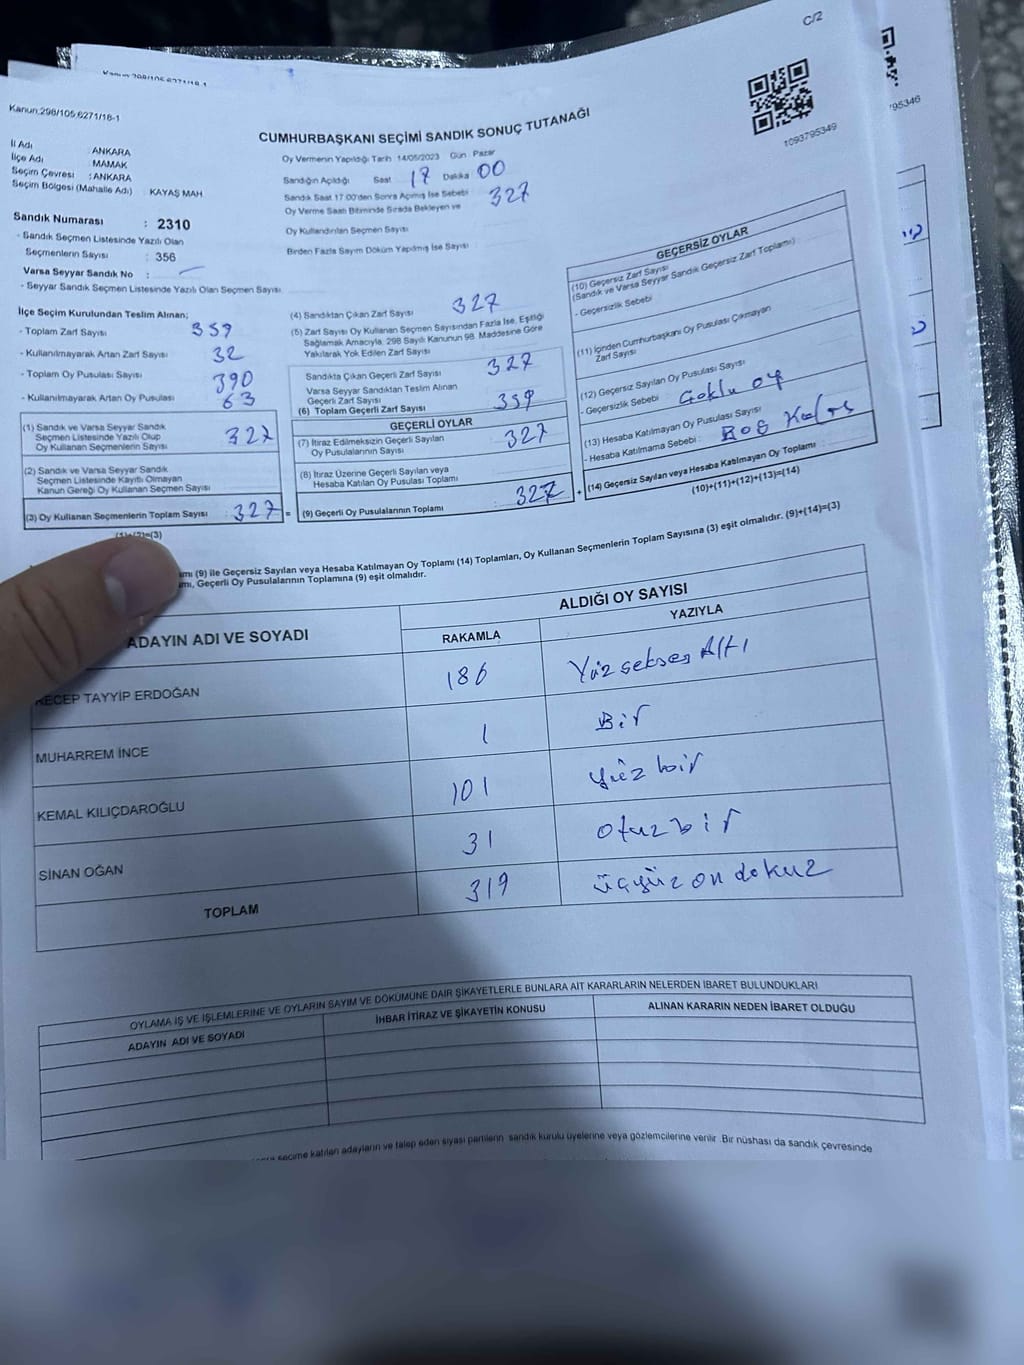 C/2
Kanun:298/105,6271/18-1
1093795349
795346
CUMHURBAŞKANI SEÇİMİ SANDIK SONUÇ TUTANAĞI
İl Adı : ANKARA
İlçe Adı : MAMAK
Seçim Çevresi : ANKARA
Seçim Bölgesi (Mahalle Adı) : KAYAŞ MAH
Oy Vermenin Yapıldığı Tarih 14/05/2023 Gün Pazar
Sandığın Açıldığı Saat 17 Dakika 00
Sandık Saat 17:00'den Sonra Açılmış İse Sebebi
Oy Verme Saati Bitiminde Sırada Bekleyen ve 327
Oy Kullandırılan Seçmen Sayısı
Birden Fazla Sayım Döküm Yapılmış İse Sayısı
Sandık Numarası : 2310
- Sandık Seçmen Listesinde Yazılı Olan
Seçmenlerin Sayısı : 356
Varsa Seyyar Sandık No :
- Seyyar Sandık Seçmen Listesinde Yazılı Olan Seçmen Sayısı
İlçe Seçim Kurulundan Teslim Alınan;
- Toplam Zarf Sayısı 359
- Kullanılmayarak Artan Zarf Sayısı 32
- Toplam Oy Pusulası Sayısı 390
- Kullanılmayarak Artan Oy Pusulası 63
(1) Sandık ve Varsa Seyyar Sandık
Seçmen Listesinde Yazılı Olup
Oy Kullanan Seçmenlerin Sayısı 327
(2) Sandık ve Varsa Seyyar Sandık
Seçmen Listesinde Kayıtlı Olmayan
Kanun Gereği Oy Kullanan Seçmen Sayısı
(3) Oy Kullanan Seçmenlerin Toplam Sayısı : 327 =
(1)+(2)=(3)
(4) Sandıktan Çıkan Zarf Sayısı 327
(5) Zarf Sayısı Oy Kullanan Seçmen Sayısından Fazla İse, Eşitliği
Sağlamak Amacıyla, 298 Sayılı Kanunun 98. Maddesine Göre
Yakılarak Yok Edilen Zarf Sayısı
Sandıkta Çıkan Geçerli Zarf Sayısı 327
Varsa Seyyar Sandıktan Teslim Alınan
Geçerli Zarf Sayısı
(6) Toplam Geçerli Zarf Sayısı 359
GEÇERLİ OYLAR
(7) İtiraz Edilmeksizin Geçerli Sayılan
Oy Pusulalarının Sayısı 327
(8) İtiraz Üzerine Geçerli Sayılan veya
Hesaba Katılan Oy Pusulası Toplamı
(9) Geçerli Oy Pusulalarının Toplamı : 327 +
GEÇERSİZ OYLAR
(10) Geçersiz Zarf Sayısı
(Sandık ve Varsa Seyyar Sandık Geçersiz Zarf Toplamı)
- Geçersizlik Sebebi
(11) İçinden Cumhurbaşkanı Oy Pusulası Çıkmayan
Zarf Sayısı
(12) Geçersiz Sayılan Oy Pusulası Sayısı
- Geçersizlik Sebebi : Çoklu oy
(13) Hesaba Katılmayan Oy Pusulası Sayısı
- Hesaba Katılmama Sebebi : Boş
(14) Geçersiz Sayılan veya Hesaba Katılmayan Oy Toplamı
(10)+(11)+(12)+(13)=(14)
(9) ile Geçersiz Sayılan veya Hesaba Katılmayan Oy Toplamı (14) Toplamları, Oy Kullanan Seçmenlerin Toplam Sayısına (3) eşit olmalıdır. (9)+(14)=(3)
Geçerli Oy Pusulalarının Toplamına (9) eşit olmalıdır.
ADAYIN ADI VE SOYADI
ALDIĞI OY SAYISI
RAKAMLA YAZIYLA
RECEP TAYYİP ERDOĞAN 186 Yüz seksen Altı
MUHARREM İNCE 1 Bir
KEMAL KILIÇDAROĞLU 101 yüz bir
SİNAN OĞAN 31 otuz bir
TOPLAM 319 üçyüz on dokuz
OYLAMA İŞ VE İŞLEMLERİNE VE OYLARIN SAYIM VE DÖKÜMÜNE DAİR ŞİKAYETLERLE BUNLARA AİT KARARLARIN NELERDEN İBARET BULUNDUKLARI
ADAYIN ADI VE SOYADI İHBAR İTİRAZ VE ŞİKAYETİN KONUSU ALINAN KARARIN NEDEN İBARET OLDUĞU
seçime katılan adayların ve talep eden siyasi partilerin sandık kurulu üyelerine veya gözlemcilerine verilir. Bir nüshası da sandık çevresinde